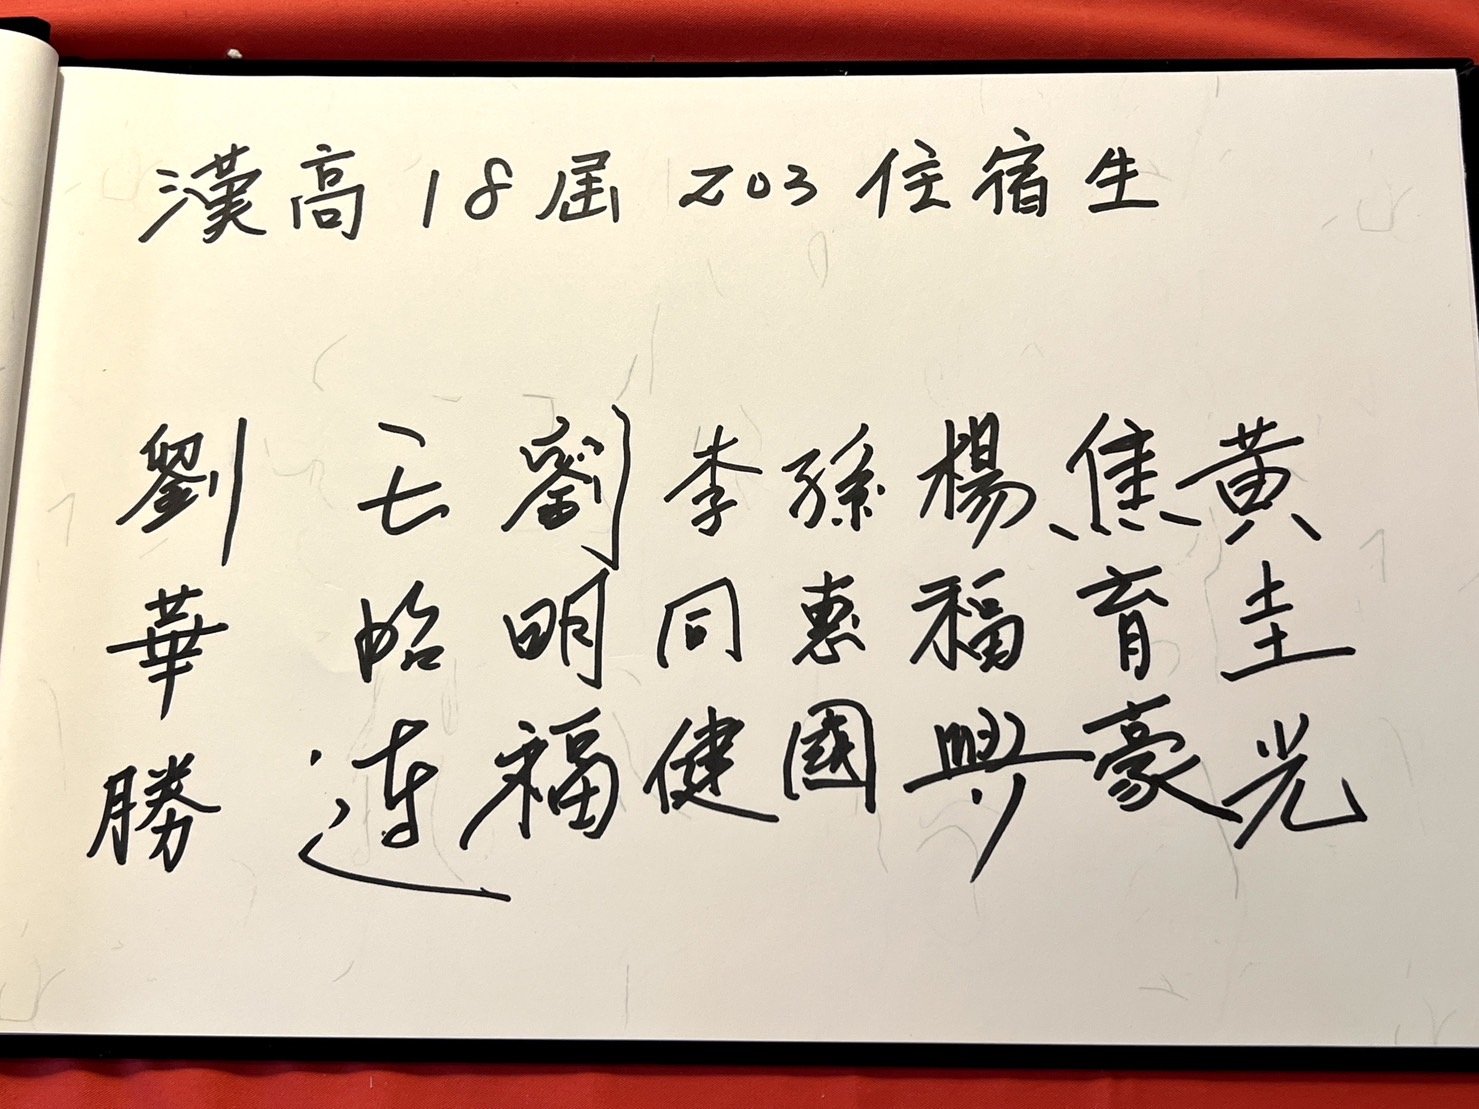 漢高18屆 203住宿生
黃圭光
焦育豪
楊福興
孫惠國
李同健
劉明福
昭連
劉華勝